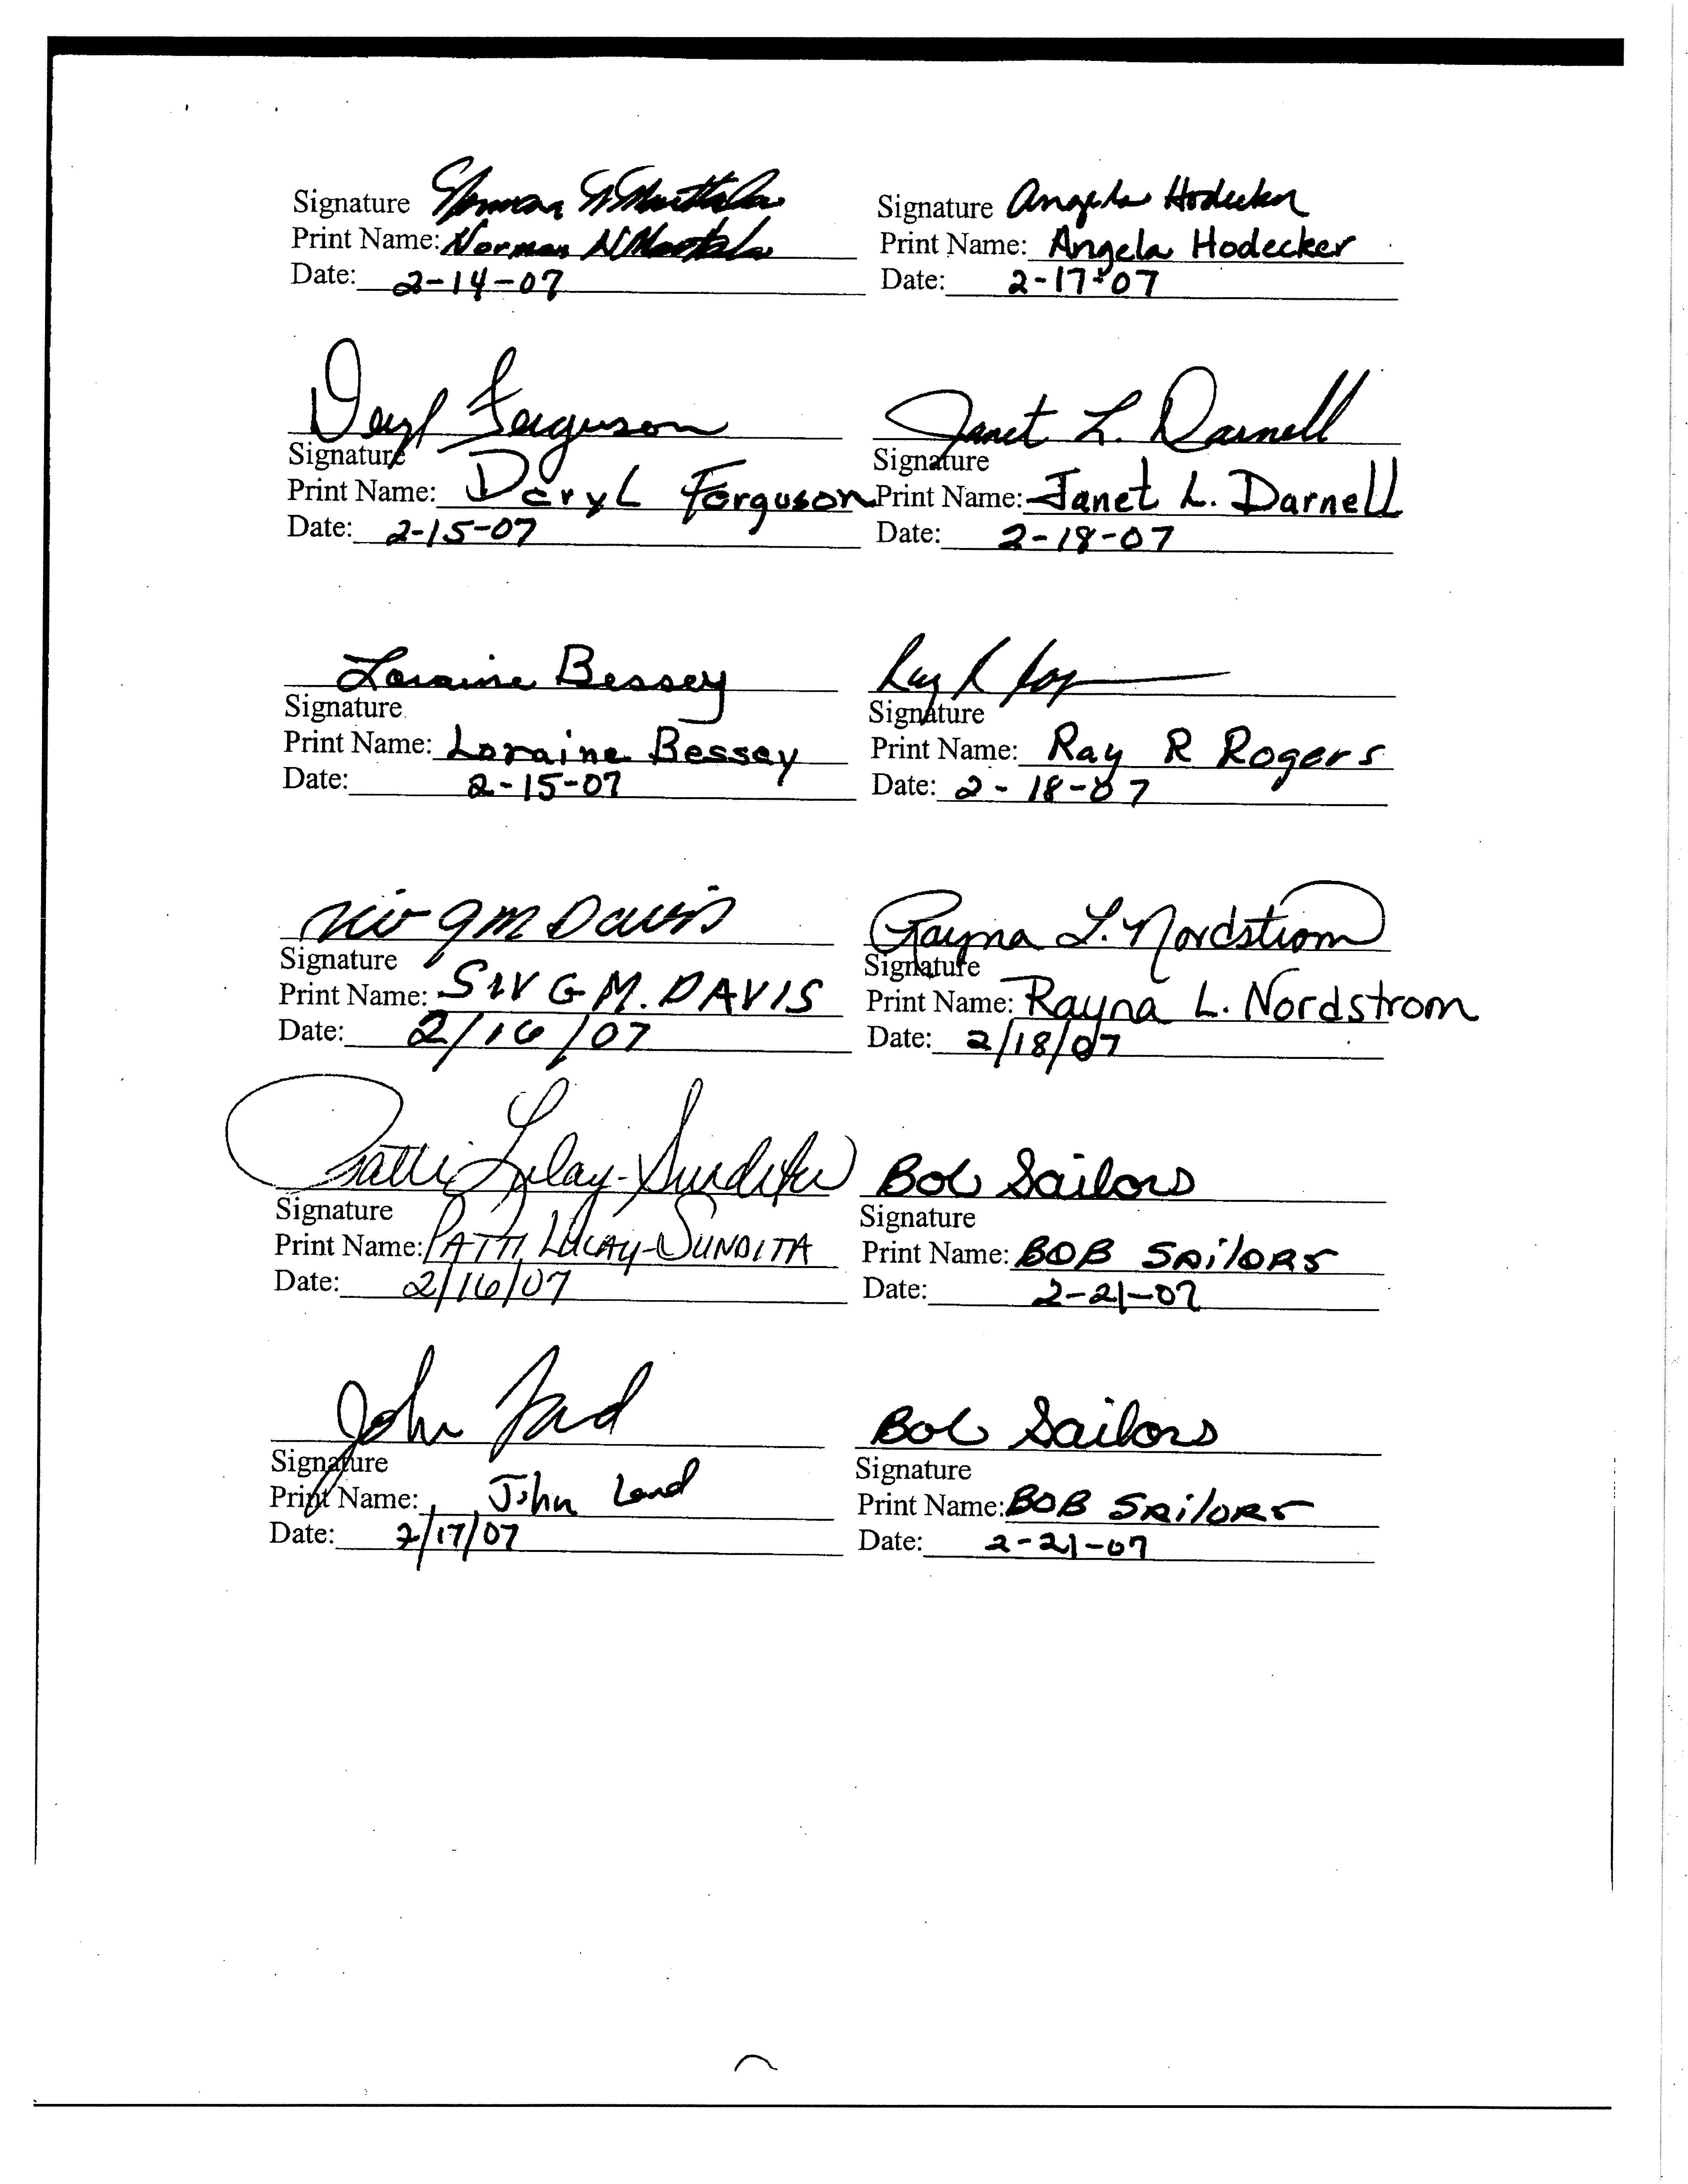 Signature Norman N Marttala Signature Angela Hodecker
Print Name: Norman N Print Name: Angela Hodecker
Date: 2-14-07 Date: 2-17-07
Deryl Ferguson Janet L. Darnell
Signature Signature
Print Name: Deryl Ferguson Print Name: Janet L. Darnell
Date: 2-15-07 Date: 2-18-07
Loraine Bessey Ray R
Signature Signature
Print Name: Loraine Bessey Print Name: Ray R Rogers
Date: 2-15-07 Date: 2-18-07
Siv G M Davis Rayna L. Nordstrom
Signature Signature
Print Name: SIV G M. DAVIS Print Name: Rayna L. Nordstrom
Date: 2/16/07 Date: 2/18/07
Patti Bob Sailors
Signature Signature
Print Name: PATTI Print Name: BOB SAilORS
Date: 2/16/07 Date: 2-21-07
John Land Bob Sailors
Signature Signature
Print Name: John Land Print Name: BOB SAilORS
Date: 2/17/07 Date: 2-21-07